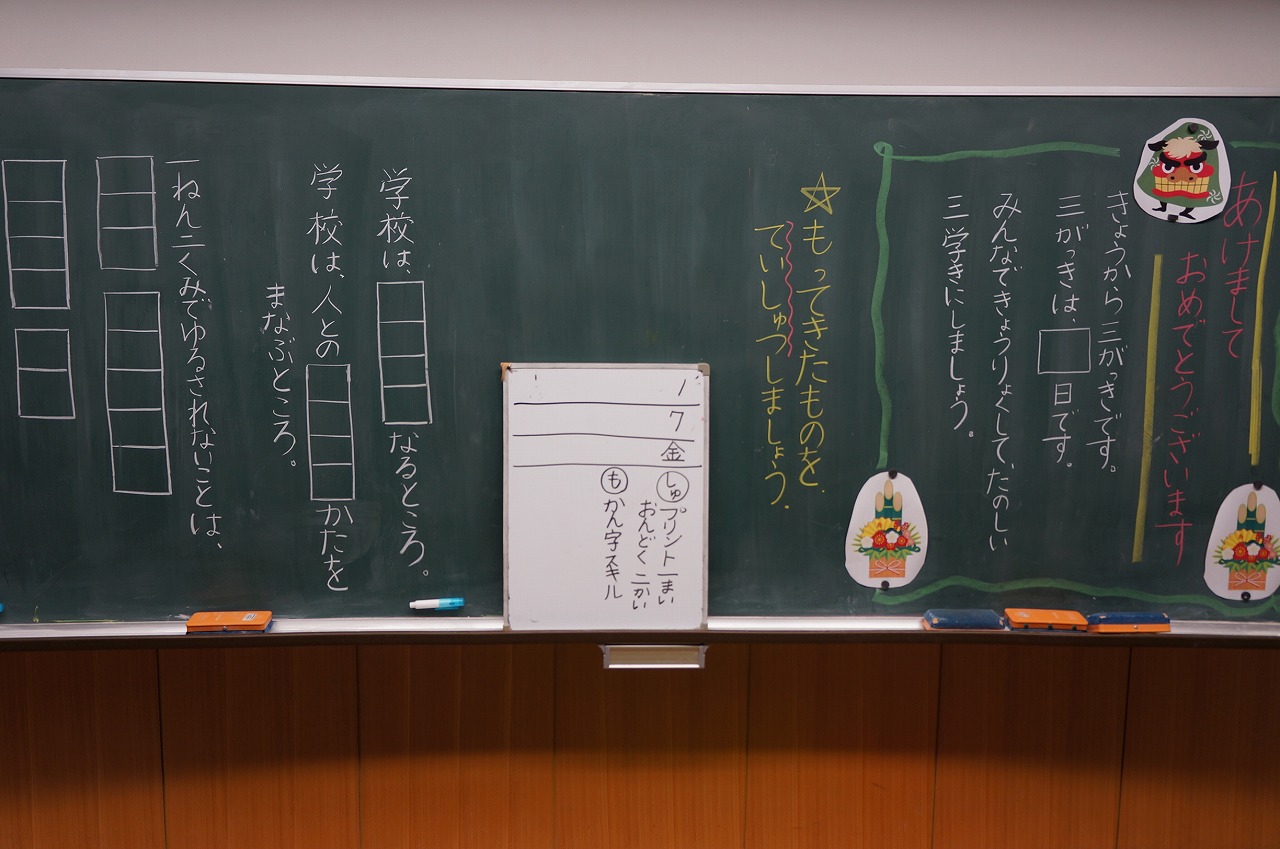 あけまして
おめでとうございます
きょうから三がっきです。
三がっきは、□日です。
みんなできょうりょくして、たのしい
三学きにしましょう。
☆もってきたものを、
ていしゅつしましょう。
1
7
金
しゅ プリント一まい
おんどく二かい
も かん字スキル
学校は、□□□□なるところ。
学校は、人との□□□□かたを
まなぶところ。
一ねん二くみでゆるされないことは、